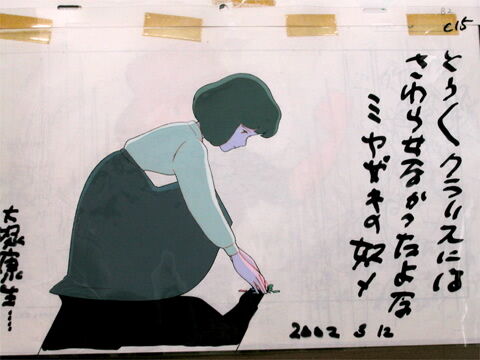 C15
とう〱クラリスには
さわらせなかったよな
ミヤザキの奴メ
2002 5 12
大塚康生……